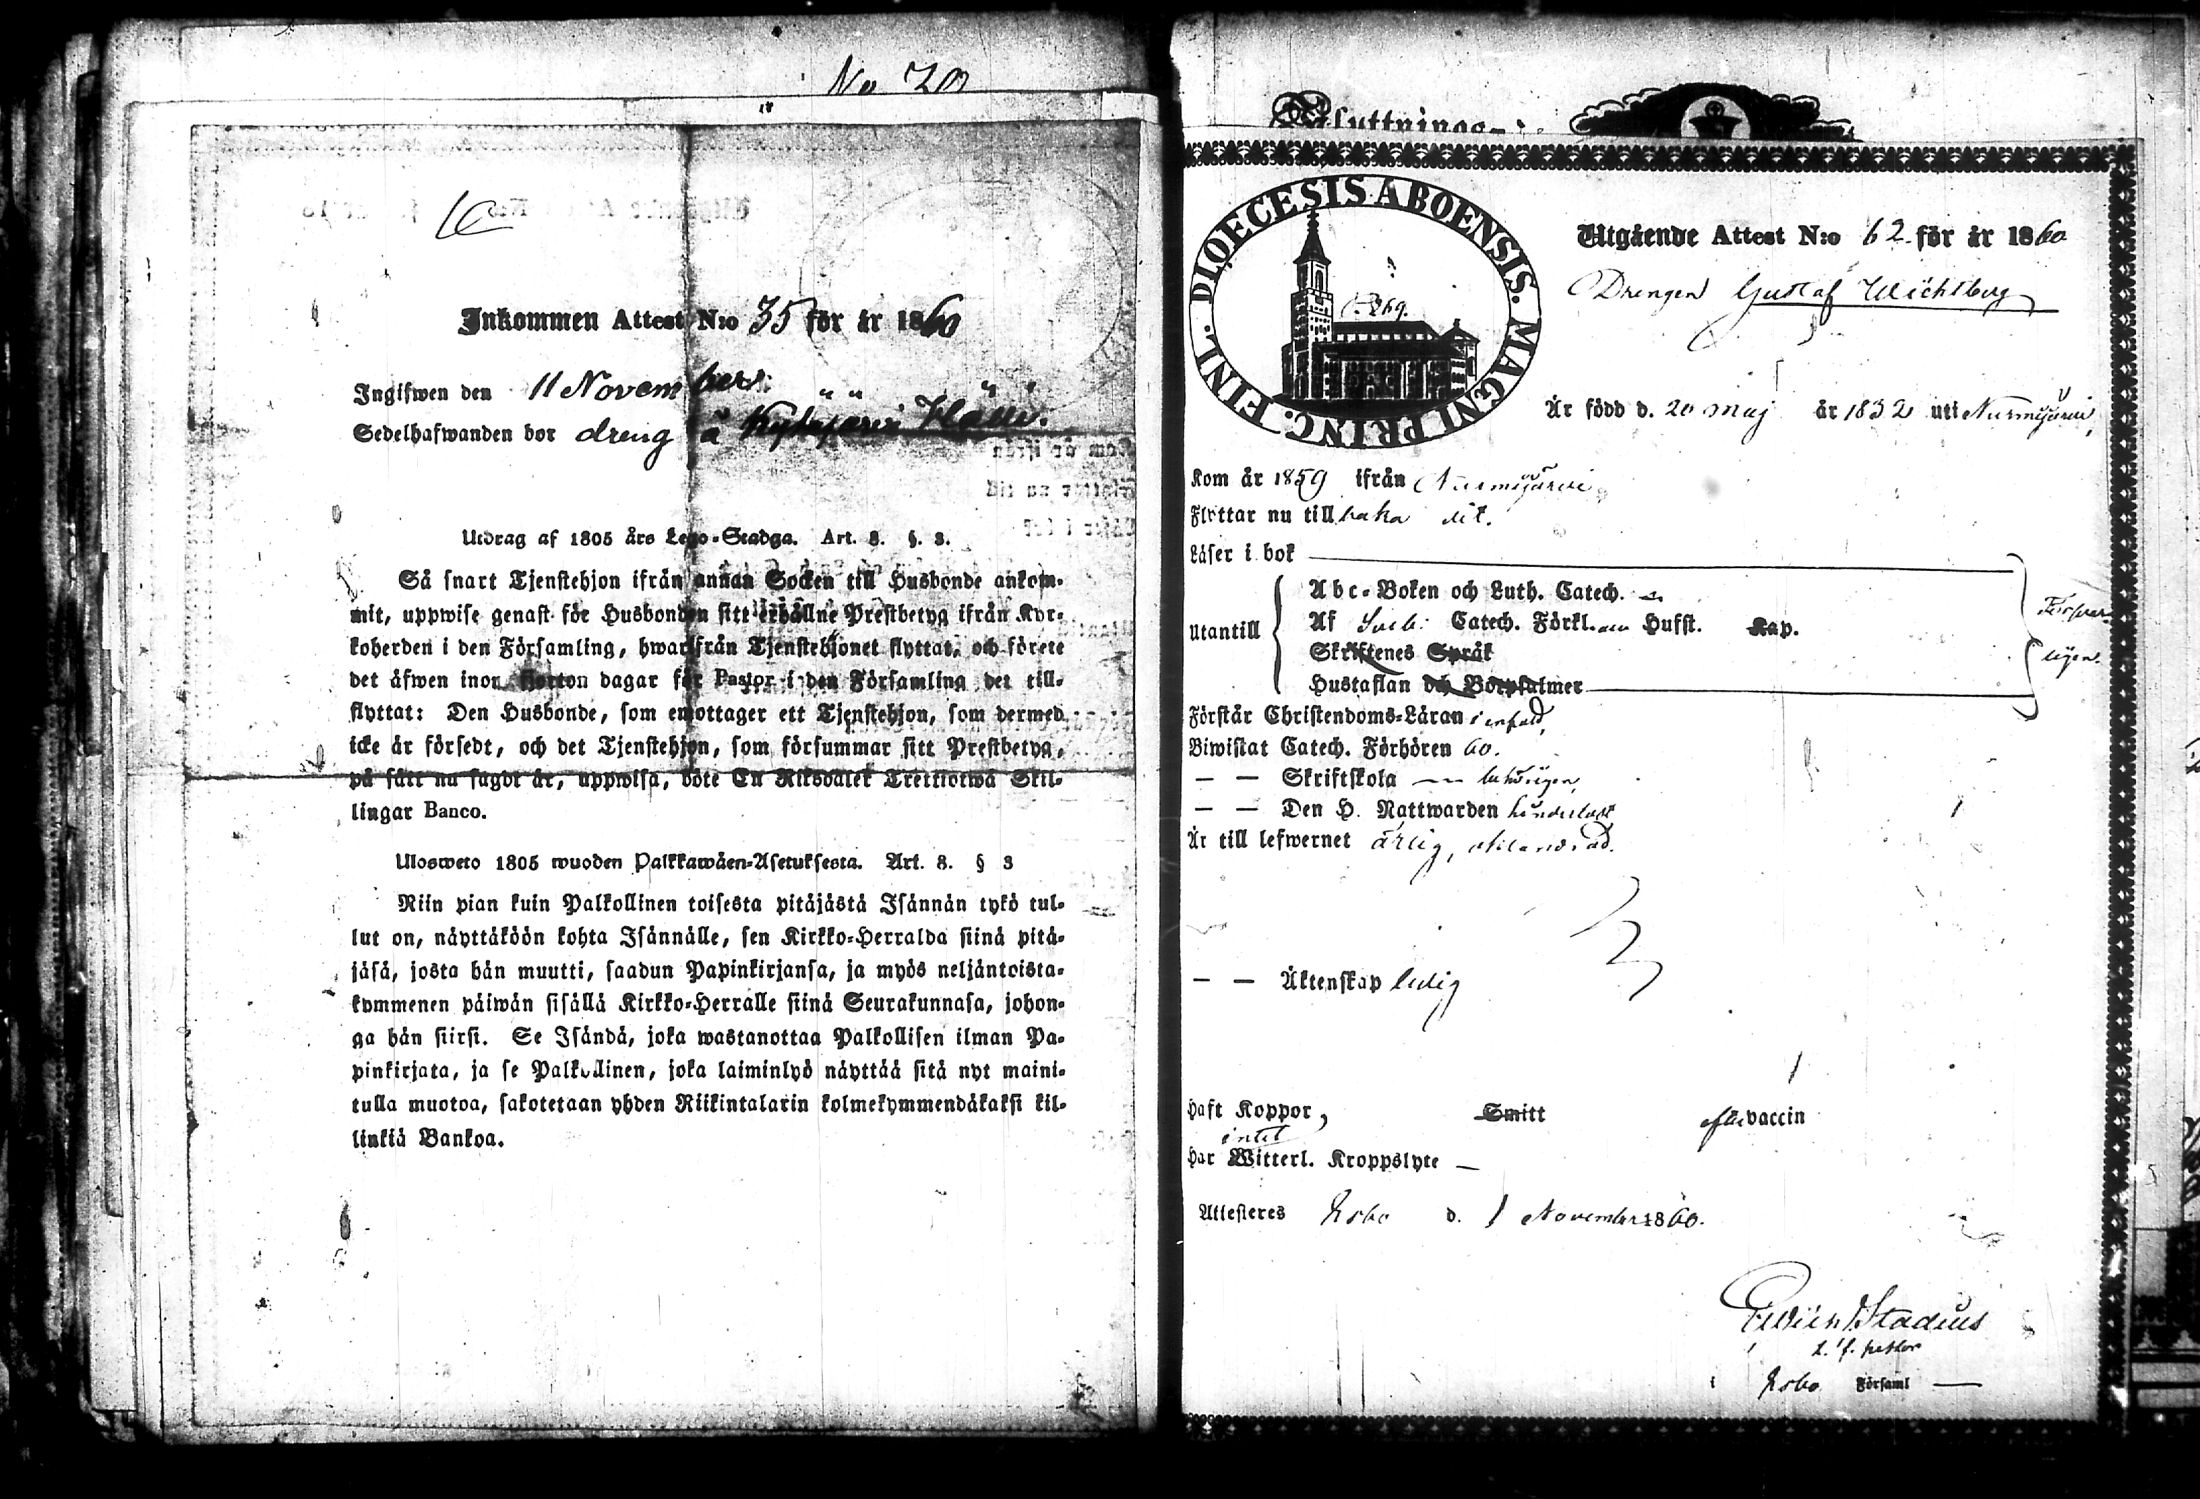 No 70
Inkommen Attest N:o 35 för år 1860
Ingifwen den 11 November
Sedelhafwanden bor dreng å Kytäjärvi
Utdrag af 1805 års Lego-Stadga. Art. 8. §. 3.
Så snart Tjenstehjon ifrån annan Socken till Husbonde ankom-
mit, uppwise genast för Husbonden sitt erhållne Prestbetyg ifrån Kyr-
koherden i den Församling, hwarifrån Tjenstehjonet flyttat, och förete
det äfwen inom fjorton dagar för Pastor i den Församling det till-
flyttat: Den Husbonde, som emottager ett Tjenstehjon, som dermed
icke är försedt, och det Tjenstehjon, som försummar sitt Prestbetyg,
på sätt nu sagdt är, uppwisa, böte En Riksdaler Trettiotwå Skil-
lingar Banco.
Ulosweto 1805 wuoden Palkkawäen-Asetuksesta. Art. 8. § 3
Niin pian kuin Palkollinen toisesta pitäjästä Isännän tykö tul-
lut on, näyttäköön kohta Isännälle, sen Kirkko-Herralda siinä pitä-
jäsä, josta hän muutti, saadun Papinkirjansa, ja myös neljäntoista-
kymmenen päiwän sisällä Kirkko-Herralle siinä Seurakunnasa, johon-
ga hän siirsi. Se Isändä, joka wastanottaa Palkollisen ilman Pa-
pinkirjata, ja se Palkollinen, joka laiminlyö näyttää sitä nyt maini-
tulla muotoa, sakotetaan yhden Riikintalarin kolmekymmendäkaksi kil-
linkiä Bankoa.
Flyttnings-
DIOECESIS ABOENSIS. MAGNI PRINC. FINL.
269.
Utgående Attest N:o 62 för år 1860
Drengen Gustaf Wichtberg
Är född d. 20 maj år 1832 uti Nurmijärvi,
Kom år 1859 ifrån Nurmijärvi
Flyttar nu tillbaka dit.
Läser i bok
Abc-Boken och Luth. Catech.
Utantill
Af Sveb. Catech. Förkl. Hufst. Kap.
Skriftenes Språk
Hustaflan och Botpsalmer
Förstår Christendoms-Läran
Biwistat Catech. Förhören 60.
— — Skriftskola
— — Den H. Nattwarden
Är till lefwernet ärlig,
— — Äktenskap ledig
Haft Koppor, Smitt efter vaccin
intet
Har Witterl. Kroppslyte —
Attesteres Esbo d. 1 November 1860.
Stadius
pastor
i Esbo Församl —